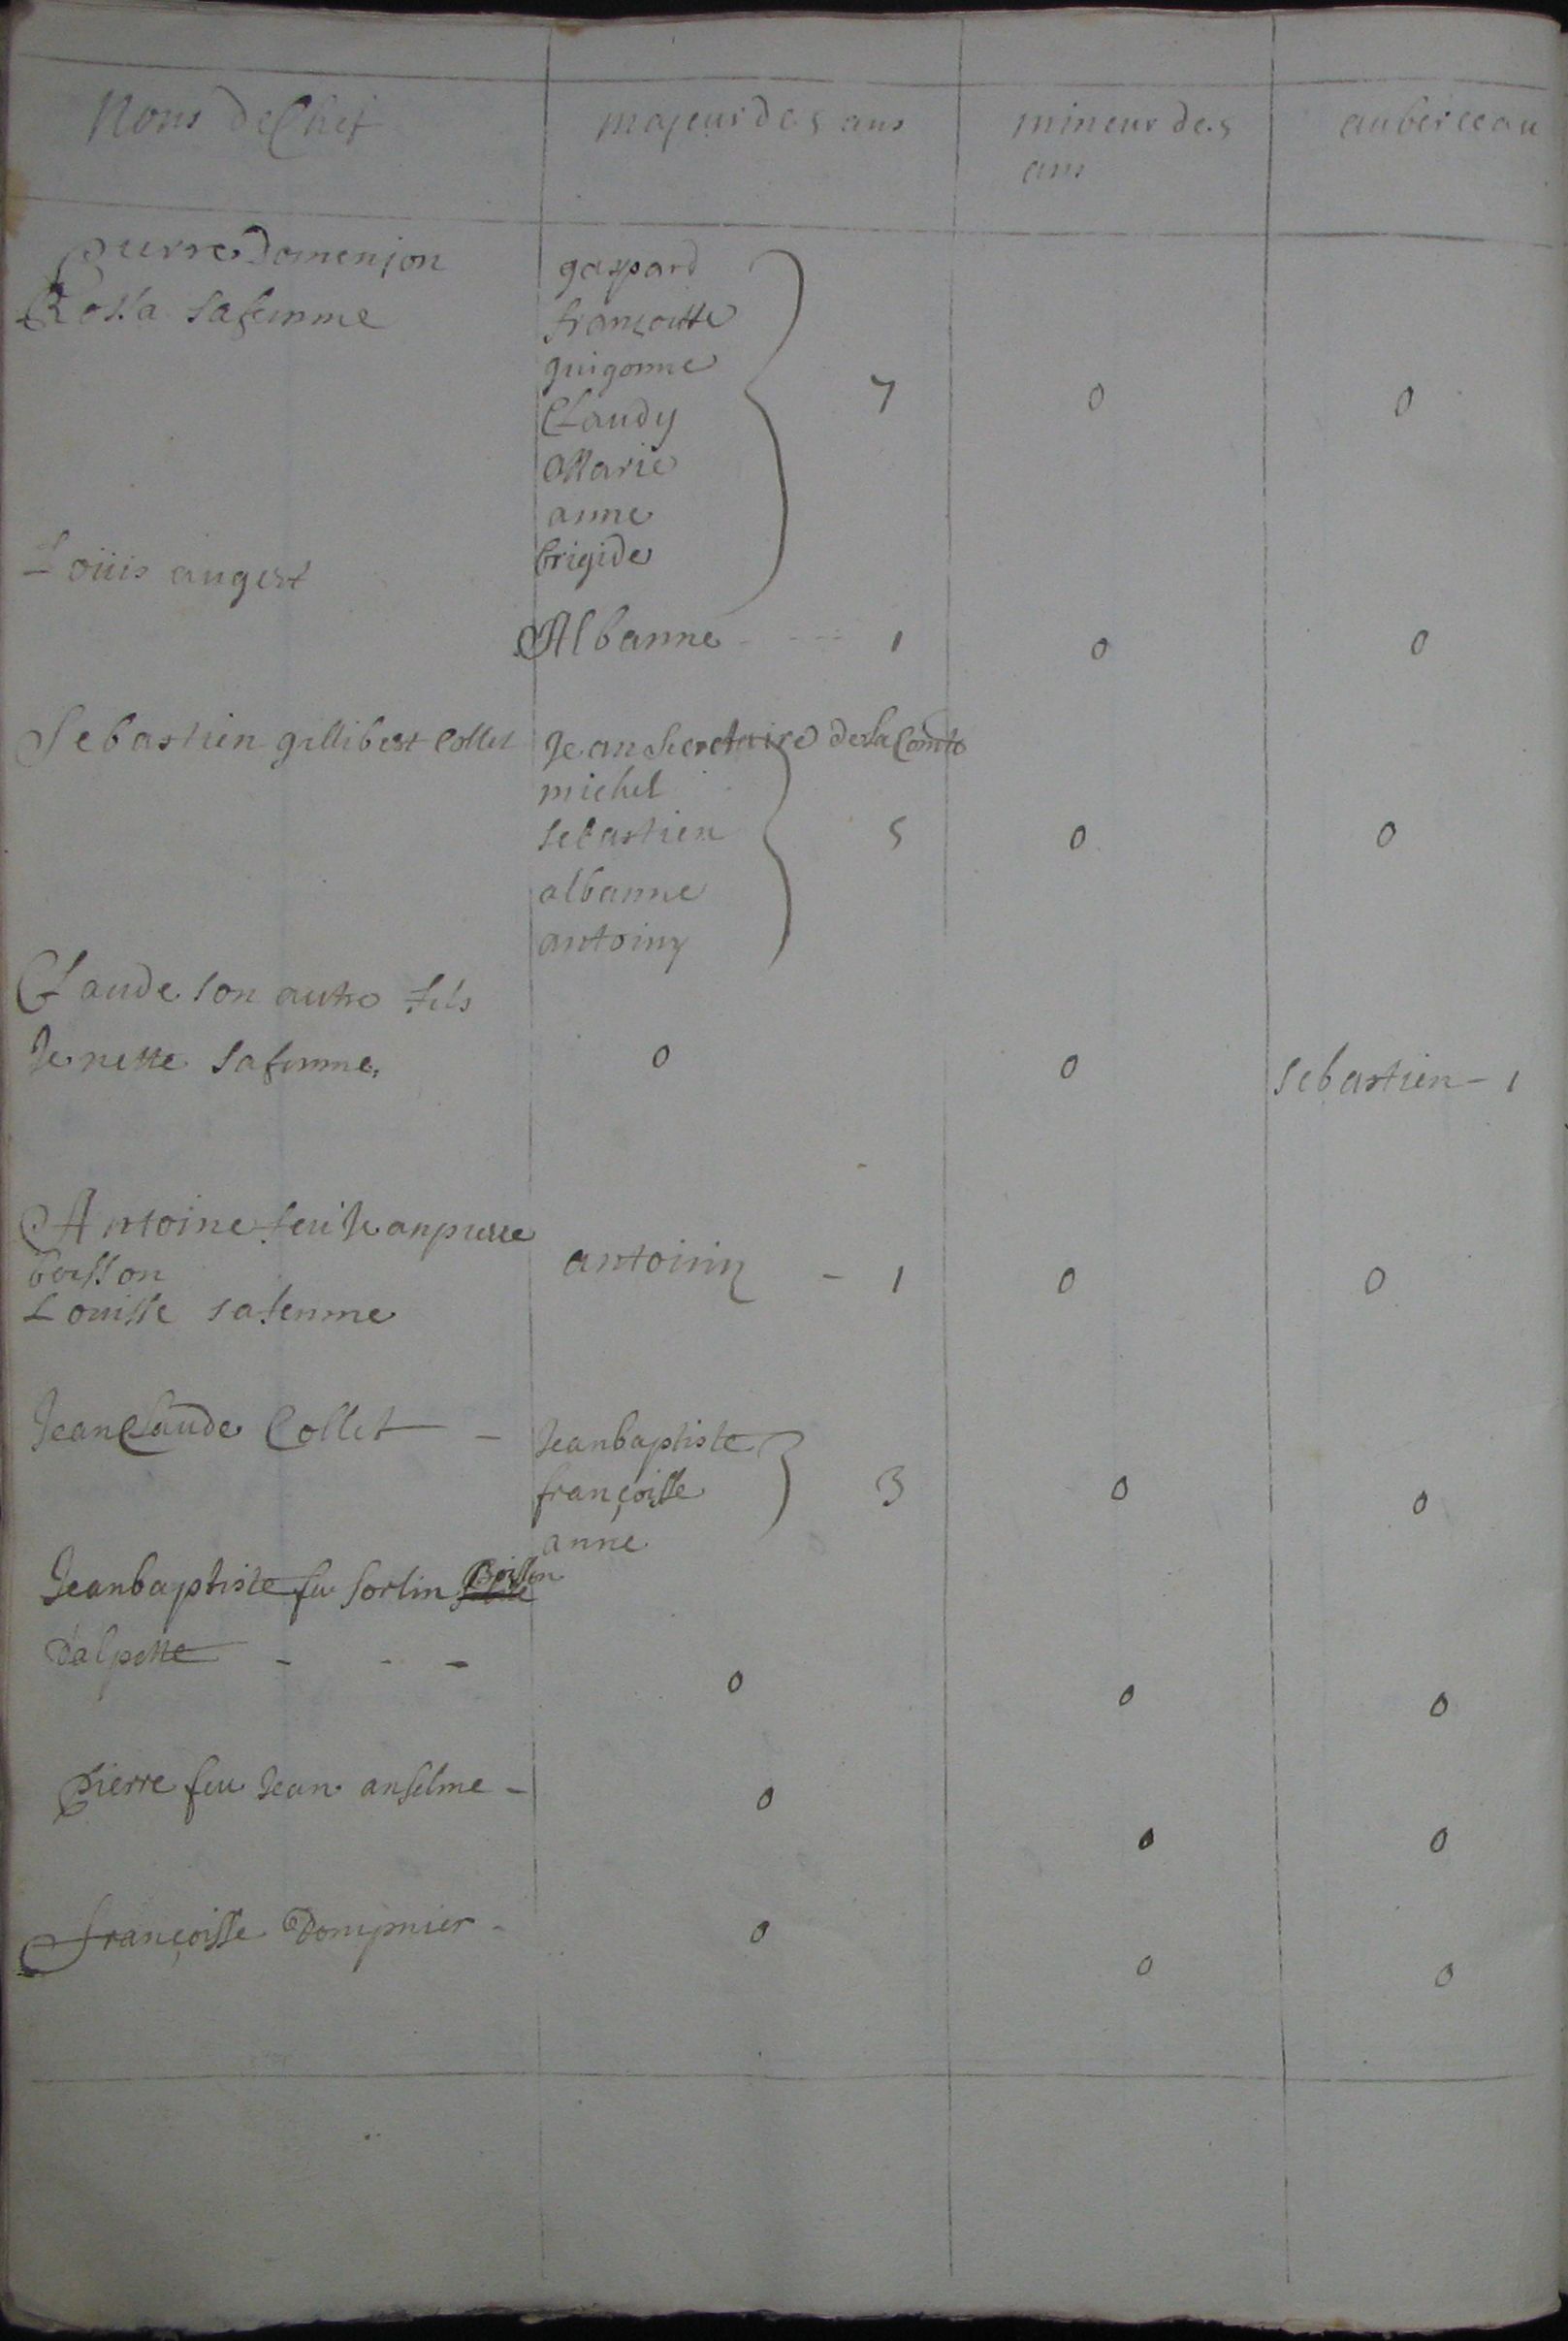 Noms de Chef majeur de 5 ans mineur de 5 au berceau
ans
pierre Domenjon gaspard
Rossa sa femme françoisse
guigonne
Claudy 7 0 0
Marie
anne
brigide
Loüis augert
Albanne - - - - 1 0 0
Sebastien gillibert Collet Jean Secretaire de la Comte
michel
sebastien 5 0 0
albanne
antoiny
Claude son autre fils
Jenette sa femme, 0 0 sebastien - 1
Antoine feu Jean pierre
boisson antoiny - 1 0 0
Louisse sa femme
Jean Claude Collet - Jean baptiste
françoisse 3 0 0
anne
Jean baptiste feu sorlin Boisson
dalpette - - - 0 0 0
pierre feu Jean anselme - 0 0 0
françoisse Dompnier - 0 0 0